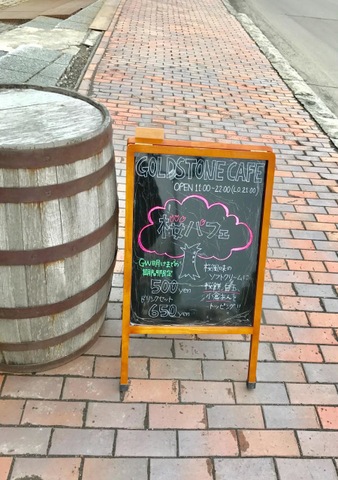 GOLDSTONE CAFE
OPEN 11:00~22:00 (L.O.21:00)
桜パフェ
GWの明けまで!!
期間限定
500yen
ドリンクセット
650yen
桜風味の
ソフトクリームに
桜餅
小倉あんを
トッピング!!